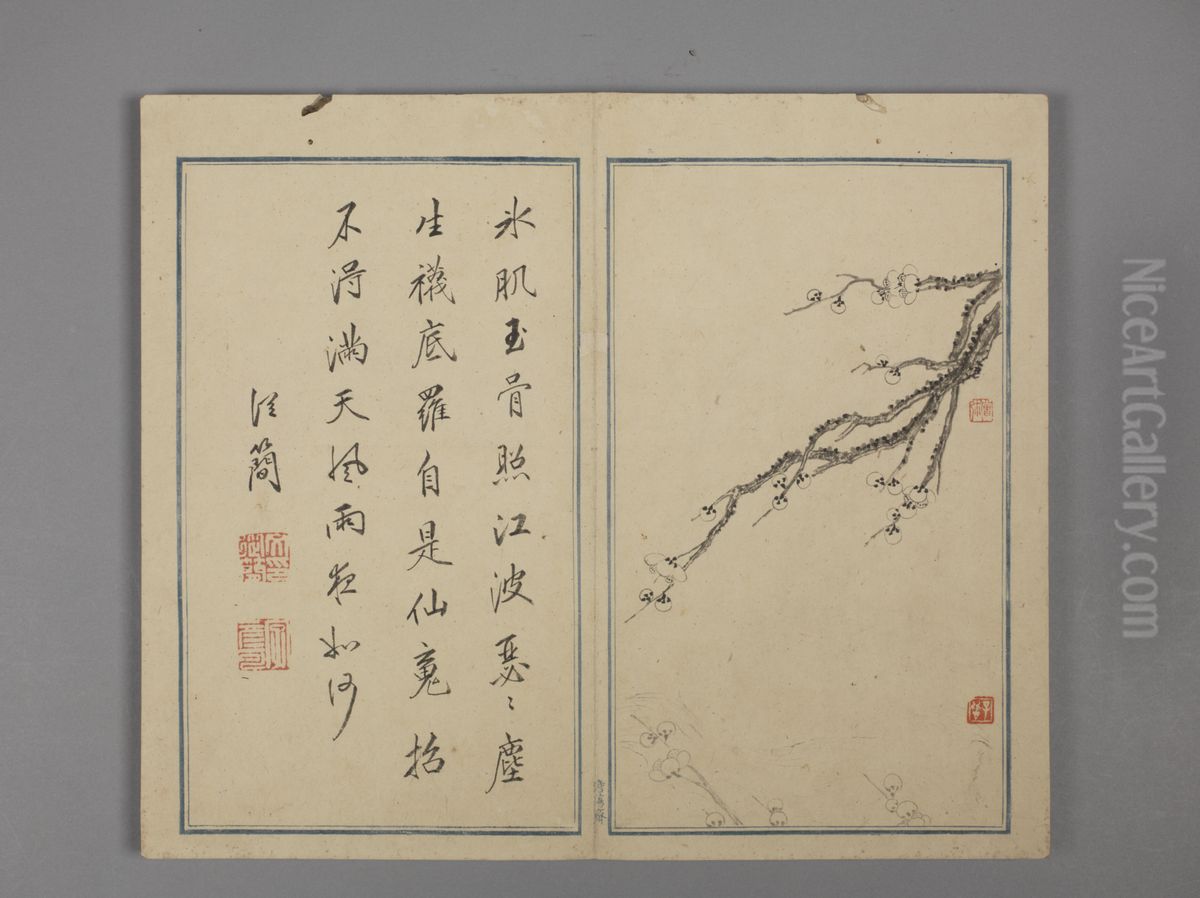 氷肌玉骨照江波瑟〻塵
生襪底羅自是仙寃招
不得滿天風雨夜如何
從簡
清秘藏
NiceArtGallery.com